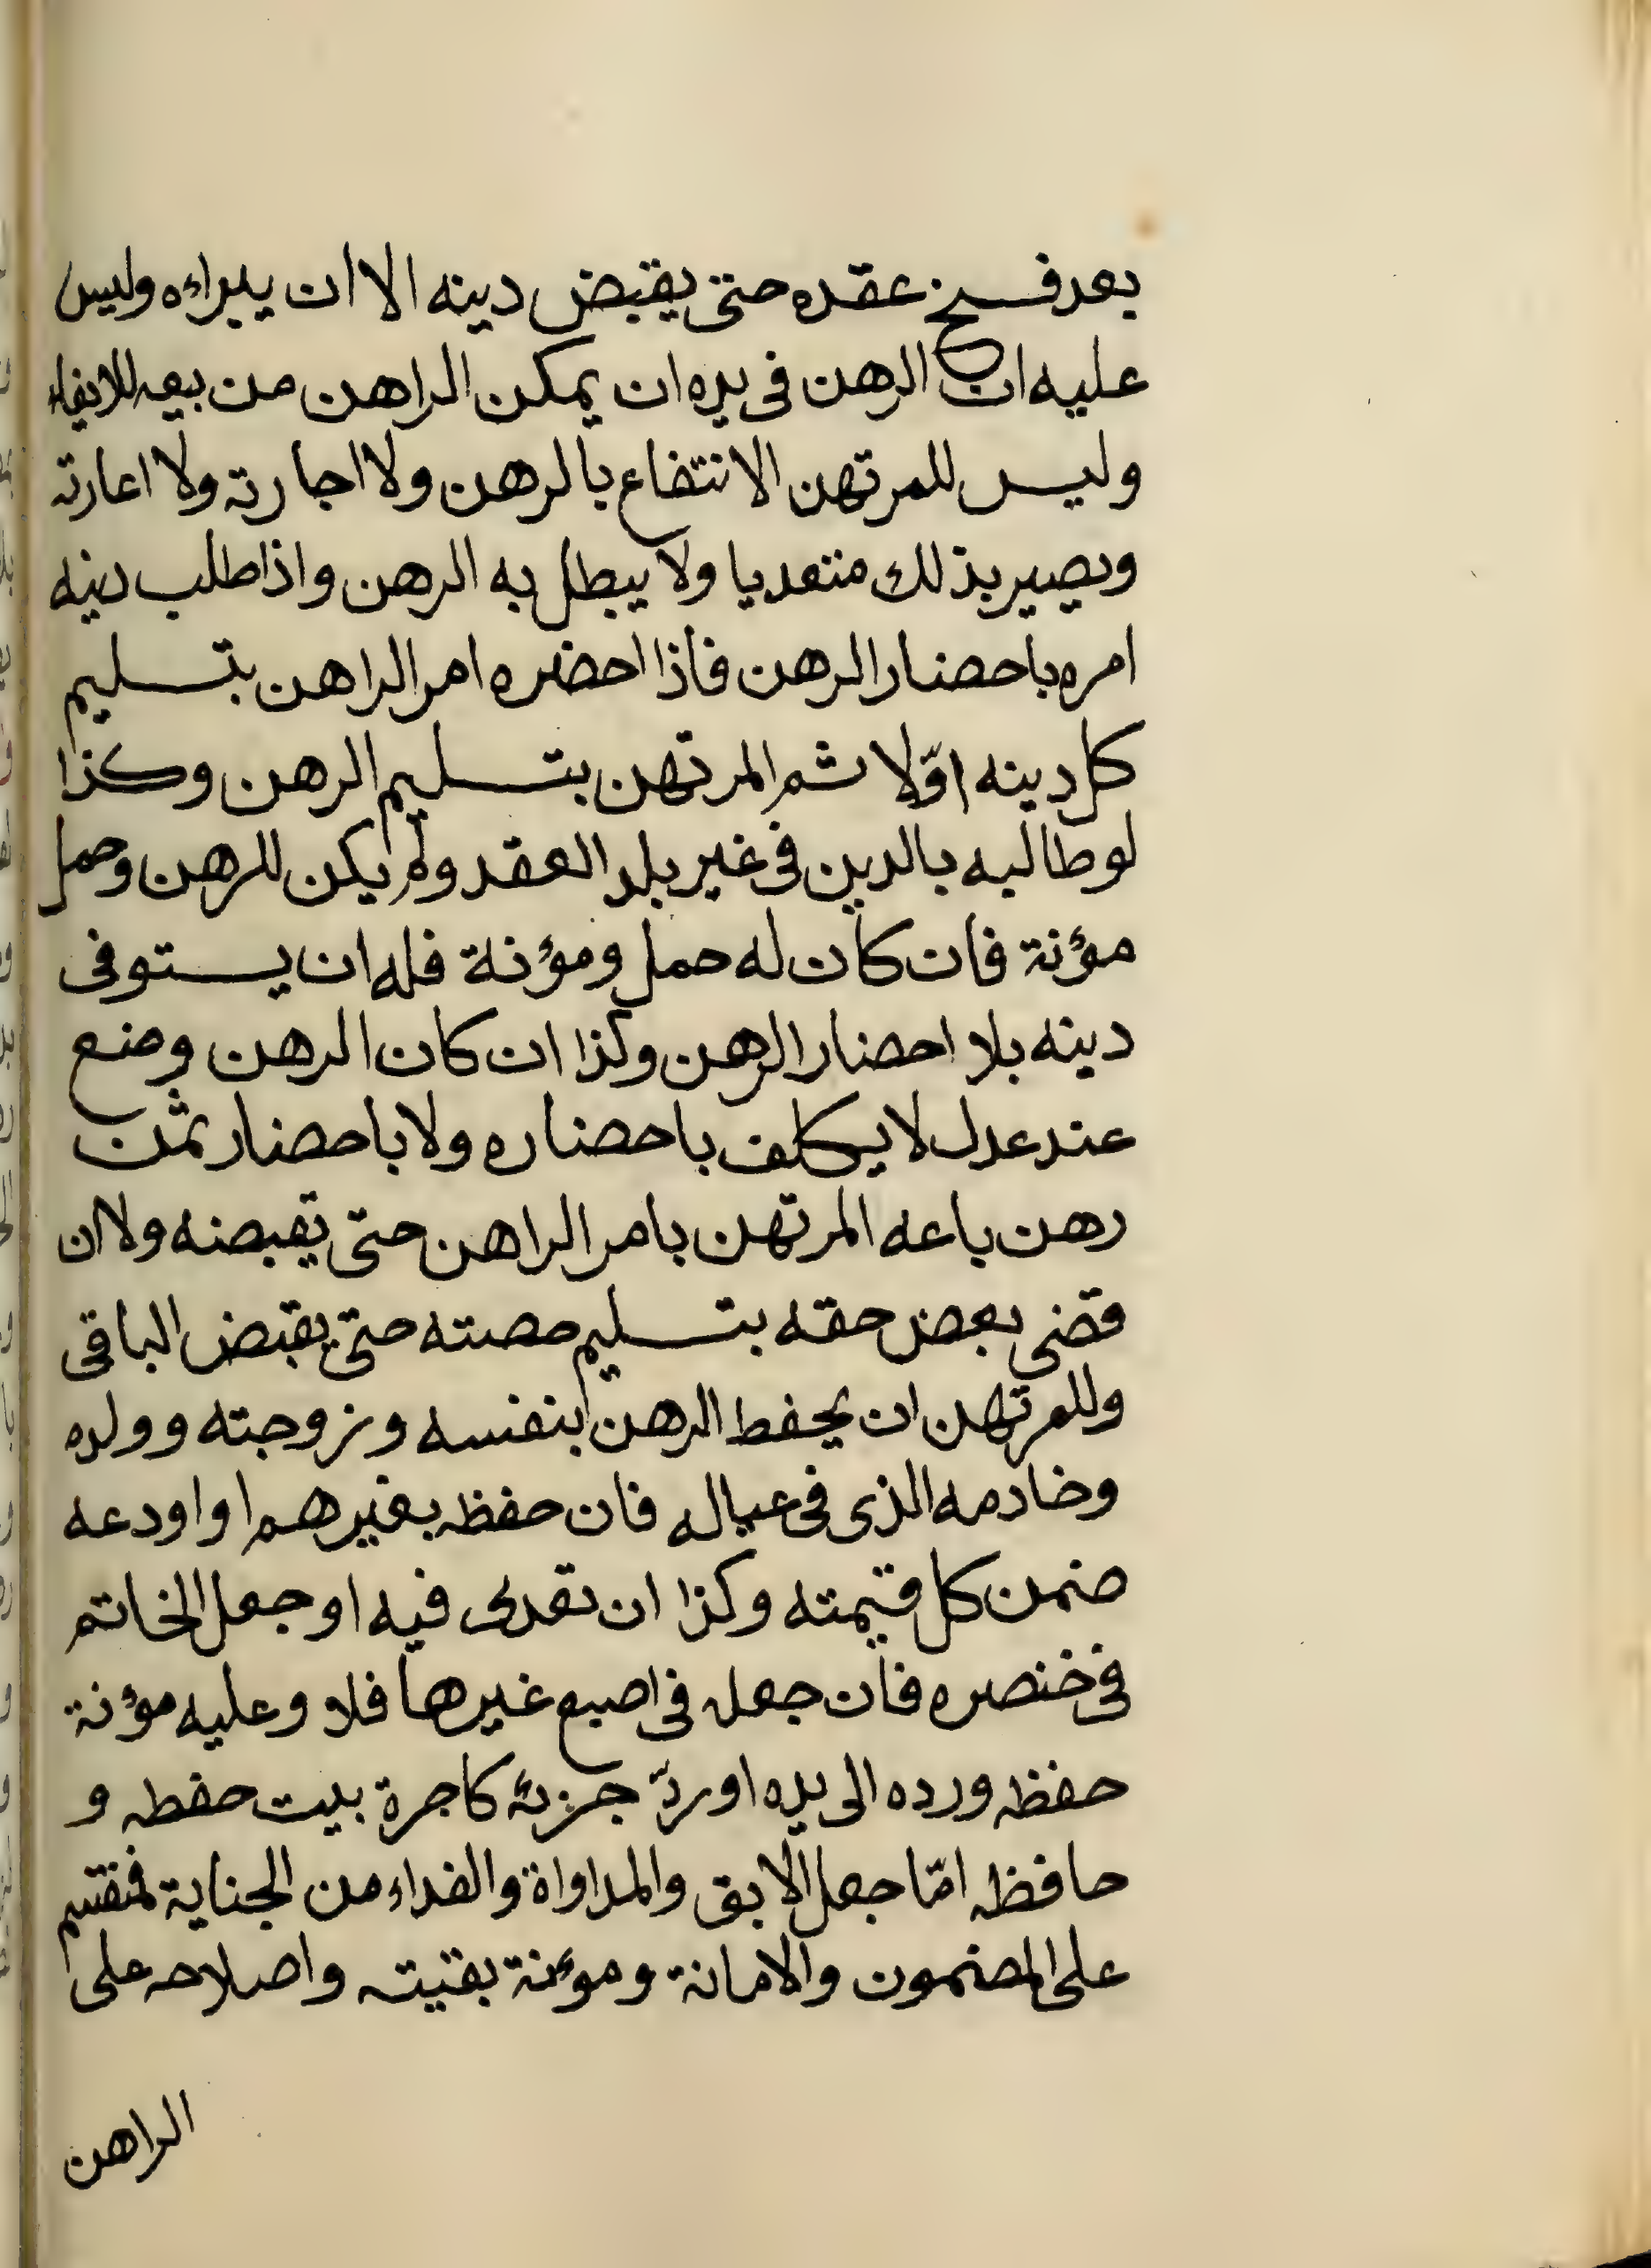 بعد فسخ عقده حتى يقبض دينه الا ان يبراءه وليس
عليه ان الرهن فى يده ان يمكن الراهن من بيعه للايفاء
وليس للمرتهن الانتفاع بالرهن ولا اجارته ولا اعارته
ويصير بذلك متعديا ولا يبطل به الرهن واذا طلب دينه
امره باحضار الرهن فاذا احضره امر الراهن بتسليم
كل دينه اوّلا ثم المرتهن بتسليم الرهن وكذا
لو طالبه بالدين فى غير بلد العقد ولم يكن للرهن وحمل
مؤنة فان كان له حمل ومؤنة فله ان يستوفى
دينه بلا احضار الرهن وكذا ان كان الرهن وضع
عند عدل لا يكلف باحضاره ولا باحضار ثمن
رهن باعه المرتهن بامر الراهن حتى يقبضه ولا ان
قضى بعض حقه بتسليم حصته حتى يقبض الباقى
وللمرتهن ان يحفط الرهن بنفسه وزوجته وولده
وخادمه الذى فى عياله فان حفظه بغيرهم او اودعه
ضمن كل قيمته وكذا ان تعدى فيه او جعل الخاتم
فى خنصره فان جعل فى اصبع غيرها فلا وعليه مؤنة
حفظه ورده الى يده او ردّ جزئه كاجرة بيت حفطه و
حافظه امّا جعل الابق والمداواة والفداء من الجناية فمنقسم
على المضمون والامانة ومؤنة بقيته واصلاحه على
الراهن